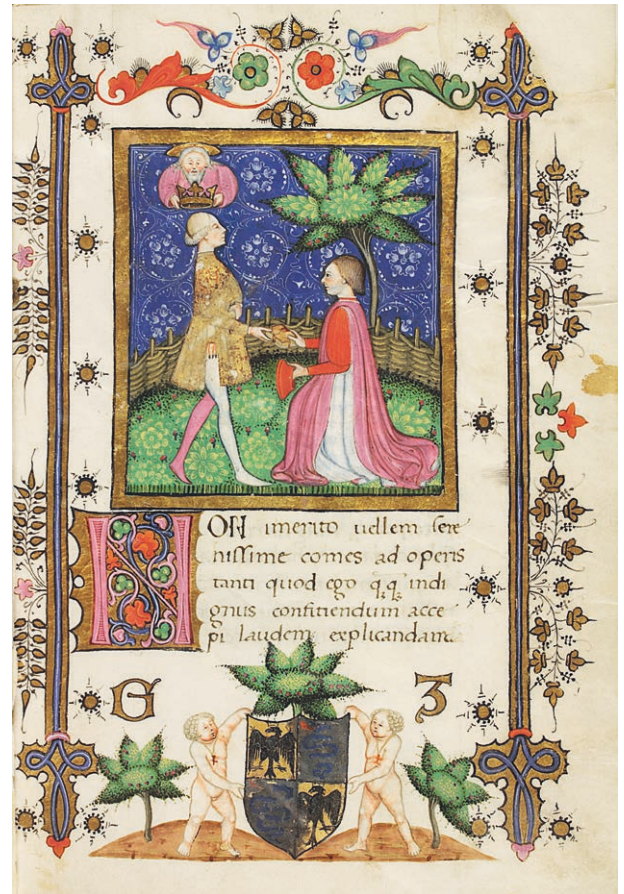 NON imerito uellem sere
nissime comes ad operis
tanti quod ego q̄ q̄ indi
gnus confitiendum acce
pi laudem explicandam.
G 3